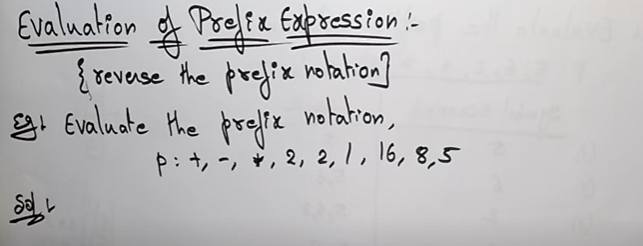 Evaluation of Prefix Expression :-
{reverse the prefix notation}
Eg: Evaluate the prefix notation,
p : +, -, *, 2, 2, /, 16, 8, 5
Sol: